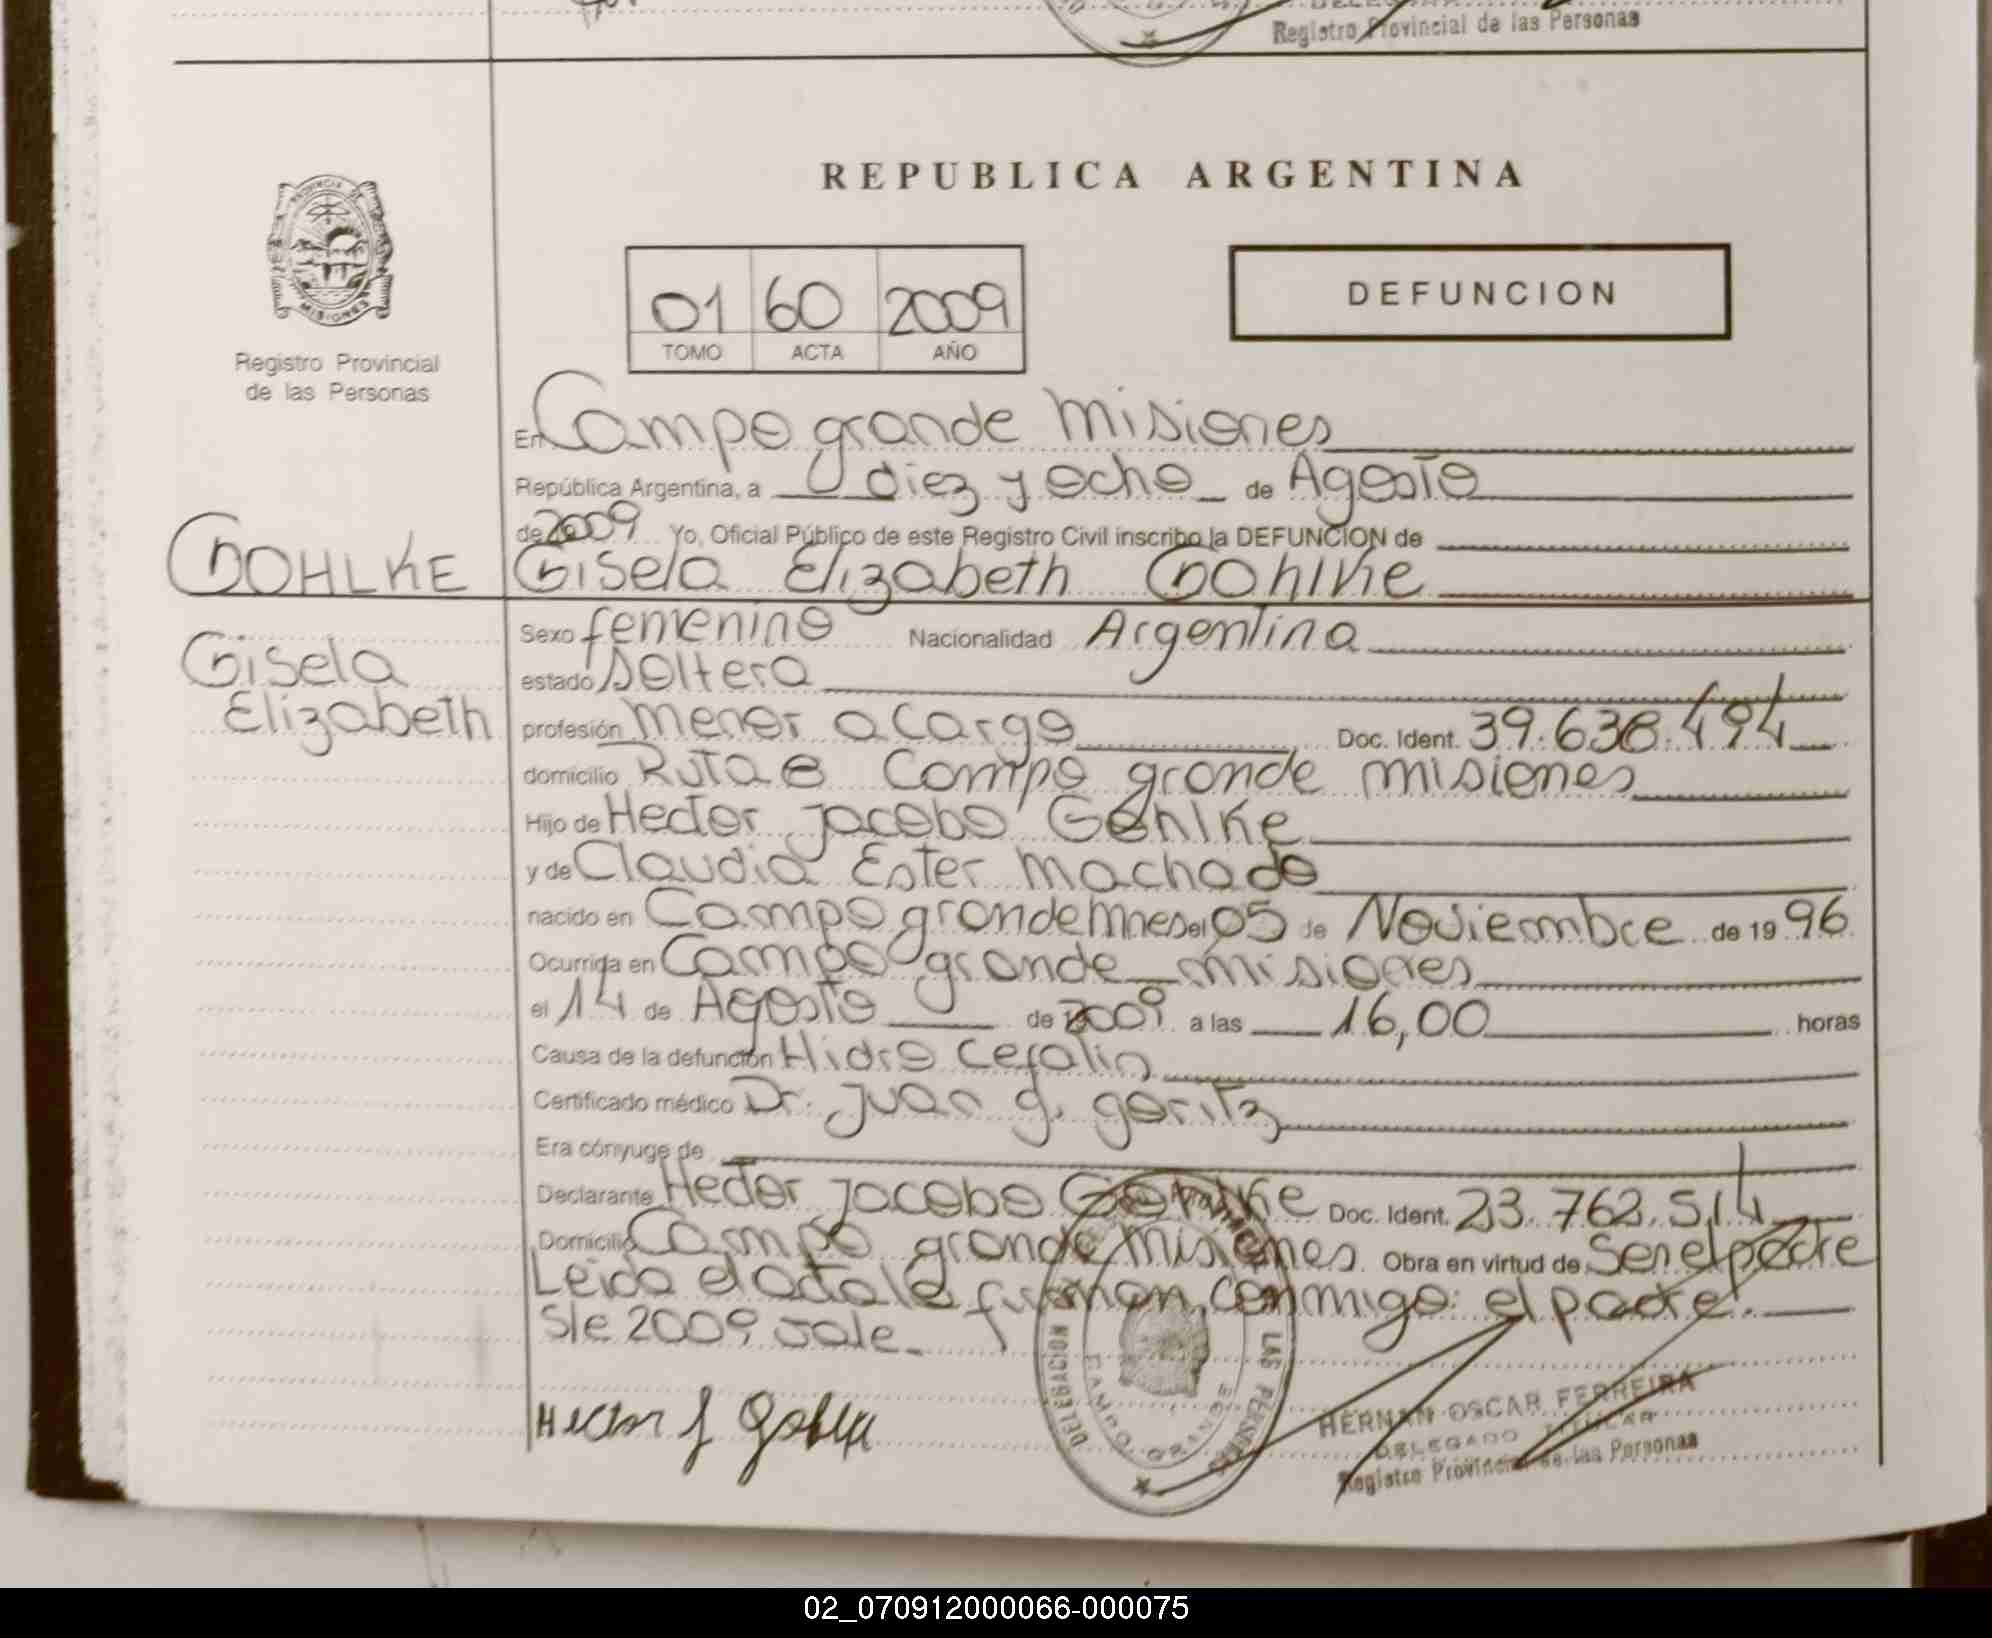 Registro Provincial de las Personas
REPUBLICA ARGENTINA
PROVINCIA DE
MISIONES
Registro Provincial
de las Personas
01 60 2009
TOMO ACTA AÑO
DEFUNCION
En Campo grande Misiones
República Argentina, a diez y ocho de Agosto
de 2009 Yo, Oficial Público de este Registro Civil inscribo la DEFUNCION de
GOHLKE
Gisela Elizabeth Gohlke
Gisela
Elizabeth
Sexo femenino Nacionalidad Argentina
estado soltera
profesión menor a cargo Doc. Ident. 39.638.494
domicilio Ruta 8 Campo grande misiones
Hijo de Hector Jacobo Gohlke
y de Claudia Ester Machado
nacido en Campo grande Mnes el 05 de Noviembre de 1996
Ocurrida en Campo grande misiones
el 14 de Agosto de 2009 a las 16,00 horas
Causa de la defunción Hidro cefalia
Certificado médico Dr. Juan g. goritz
Era cónyuge de
Declarante Hector Jacobo Gohlke Doc. Ident. 23.762.514
Domicilio Campo grande misiones Obra en virtud de Ser el padre
Leida el acta la firman conmigo: el padre.
S/e 2009 vale
Hector J Gohlke
DELEGACION LAS PERSONAS
CAMPO GRANDE
HERNAN OSCAR FERREIRA
DELEGADO TITULAR
Registro Provincial de las Personas
02_070912000066-000075